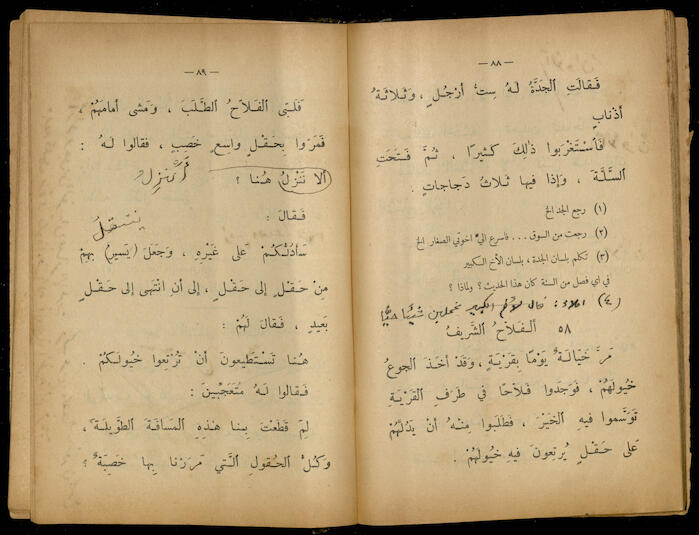 — ٨٨ —
فَقالَتِ الجَدَّةُ لَهُ سِتُّ أَرْجُلٍ ، وَثَلاثَةُ
أَذْنابٍ
فَاسْتَغْرَبُوا ذٰلِكَ كَثيرًا ، ثُمَّ فَتَحَتِ
السَّلَّةَ ، وَإِذا فيها ثَلاثُ دَجاجاتٍ .
(١) رجع الجد الخ
(٢) رجعت من السوق ... فاسرع اليَّ اخوتي الصغار الخ
(٣) تكلم بلسان الجدة ، بلسان الأخ الكبير
في اي فصل من السنة كان هذا الحديث ؟ ولماذا ؟
(٤) املاء : قال الأخ الكبير شيئًا حيًّا
٥٨ أَلفَلاَّحُ الشَّريفُ
مَرَّ خَيَّالَةٌ يَوْمًا بِقَرْيَةٍ ، وَقَدْ أَخَذَ الجوعُ
خُيولَهُمْ ، فَوَجَدوا فَلاَّحًا في طَرَفِ القَرْيَةِ
تَوَسَّموا فيهِ الخَيْرَ ، فَطَلَبُوا مِنْهُ أَنْ يَدُلَّهُمْ
عَلى حَقْلٍ يُرْعونَ فيهِ خُيولَهُمْ .
— ٨٩ —
فَلَبَّى الفَلاَّحُ الطَّلَبَ ، وَمَشى أَمامَهُمْ ،
فَمَرّوا بِحَقْلٍ واسِعٍ خَصِبٍ ، فَقالوا لَهُ :
أَلا نَنْزِلُ هُنا ؟ أَنَنزِل
فَقالَ :
ينتقل
سَأَدُلُّكُمْ عَلى غَيْرِهِ ، وَجَعَلَ (يَسيرُ) بِهِمْ
مِنْ حَقْلٍ إِلى حَقْلٍ ، إِلى أَنِ انْتَهى إِلى حَقْلٍ
بَعيدٍ ، فَقالَ لَهُمْ :
هُنا تَسْتَطيعونَ أَنْ تُرْعوا خُيولَكُمْ .
فَقالوا لَهُ مُتَعَجِّبينَ :
لِمَ قَطَعْتَ بِنا هٰذِهِ المَسافَةَ الطَّويلَةَ ،
وَكُلُّ الحُقولِ الَّتي مَرَرْنا بِها خَصِبَةٌ ؟